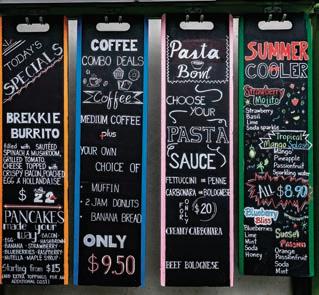 TODAY'S
SPECIALS
BREKKIE
BURRITO
filled with SAUTÉED
SPINACH & MUSHROOM,
GRILLED TOMATO,
CHEESE TOPPED with
CRISPY BACON, POACHED
EGG & HOLLANDAISE
$22
PANCAKES
made your
way
BACON
EGG
BANANA - STRAWBERRY
BLUEBERRIES - RASPBERRY
NUTELLA - MAPLE SYRUP
Starting from $15
(AND EXTRA TOPPINGS FOR AN
ADDITIONAL COST)
COFFEE
COMBO DEALS
Coffee
MEDIUM COFFEE
plus
YOUR OWN
CHOICE OF
MUFFIN
2 JAM DONUTS
BANANA BREAD
ONLY
$9.50
Pasta
Bowl
CHOOSE
YOUR
PASTA
SAUCE
FETTUCCINI - PENNE
CARBONARA - BOLOGNESE
ONLY
$20
CREAMY CARBONARA
BEEF BOLOGNESE
SUMMER
COOLER
Strawberry
Mojito
Strawberry
Basil
Lime
Soda sparkle
Tropical
Mango
Mango
Pineapple
Passionfruit
Sparkling water
ALL $8.90
Blueberry
Bliss
Blueberries
Lime
Mint
Soda
Honey
Sunset
Passion
Orange
Passionfruit
Soda
Mint